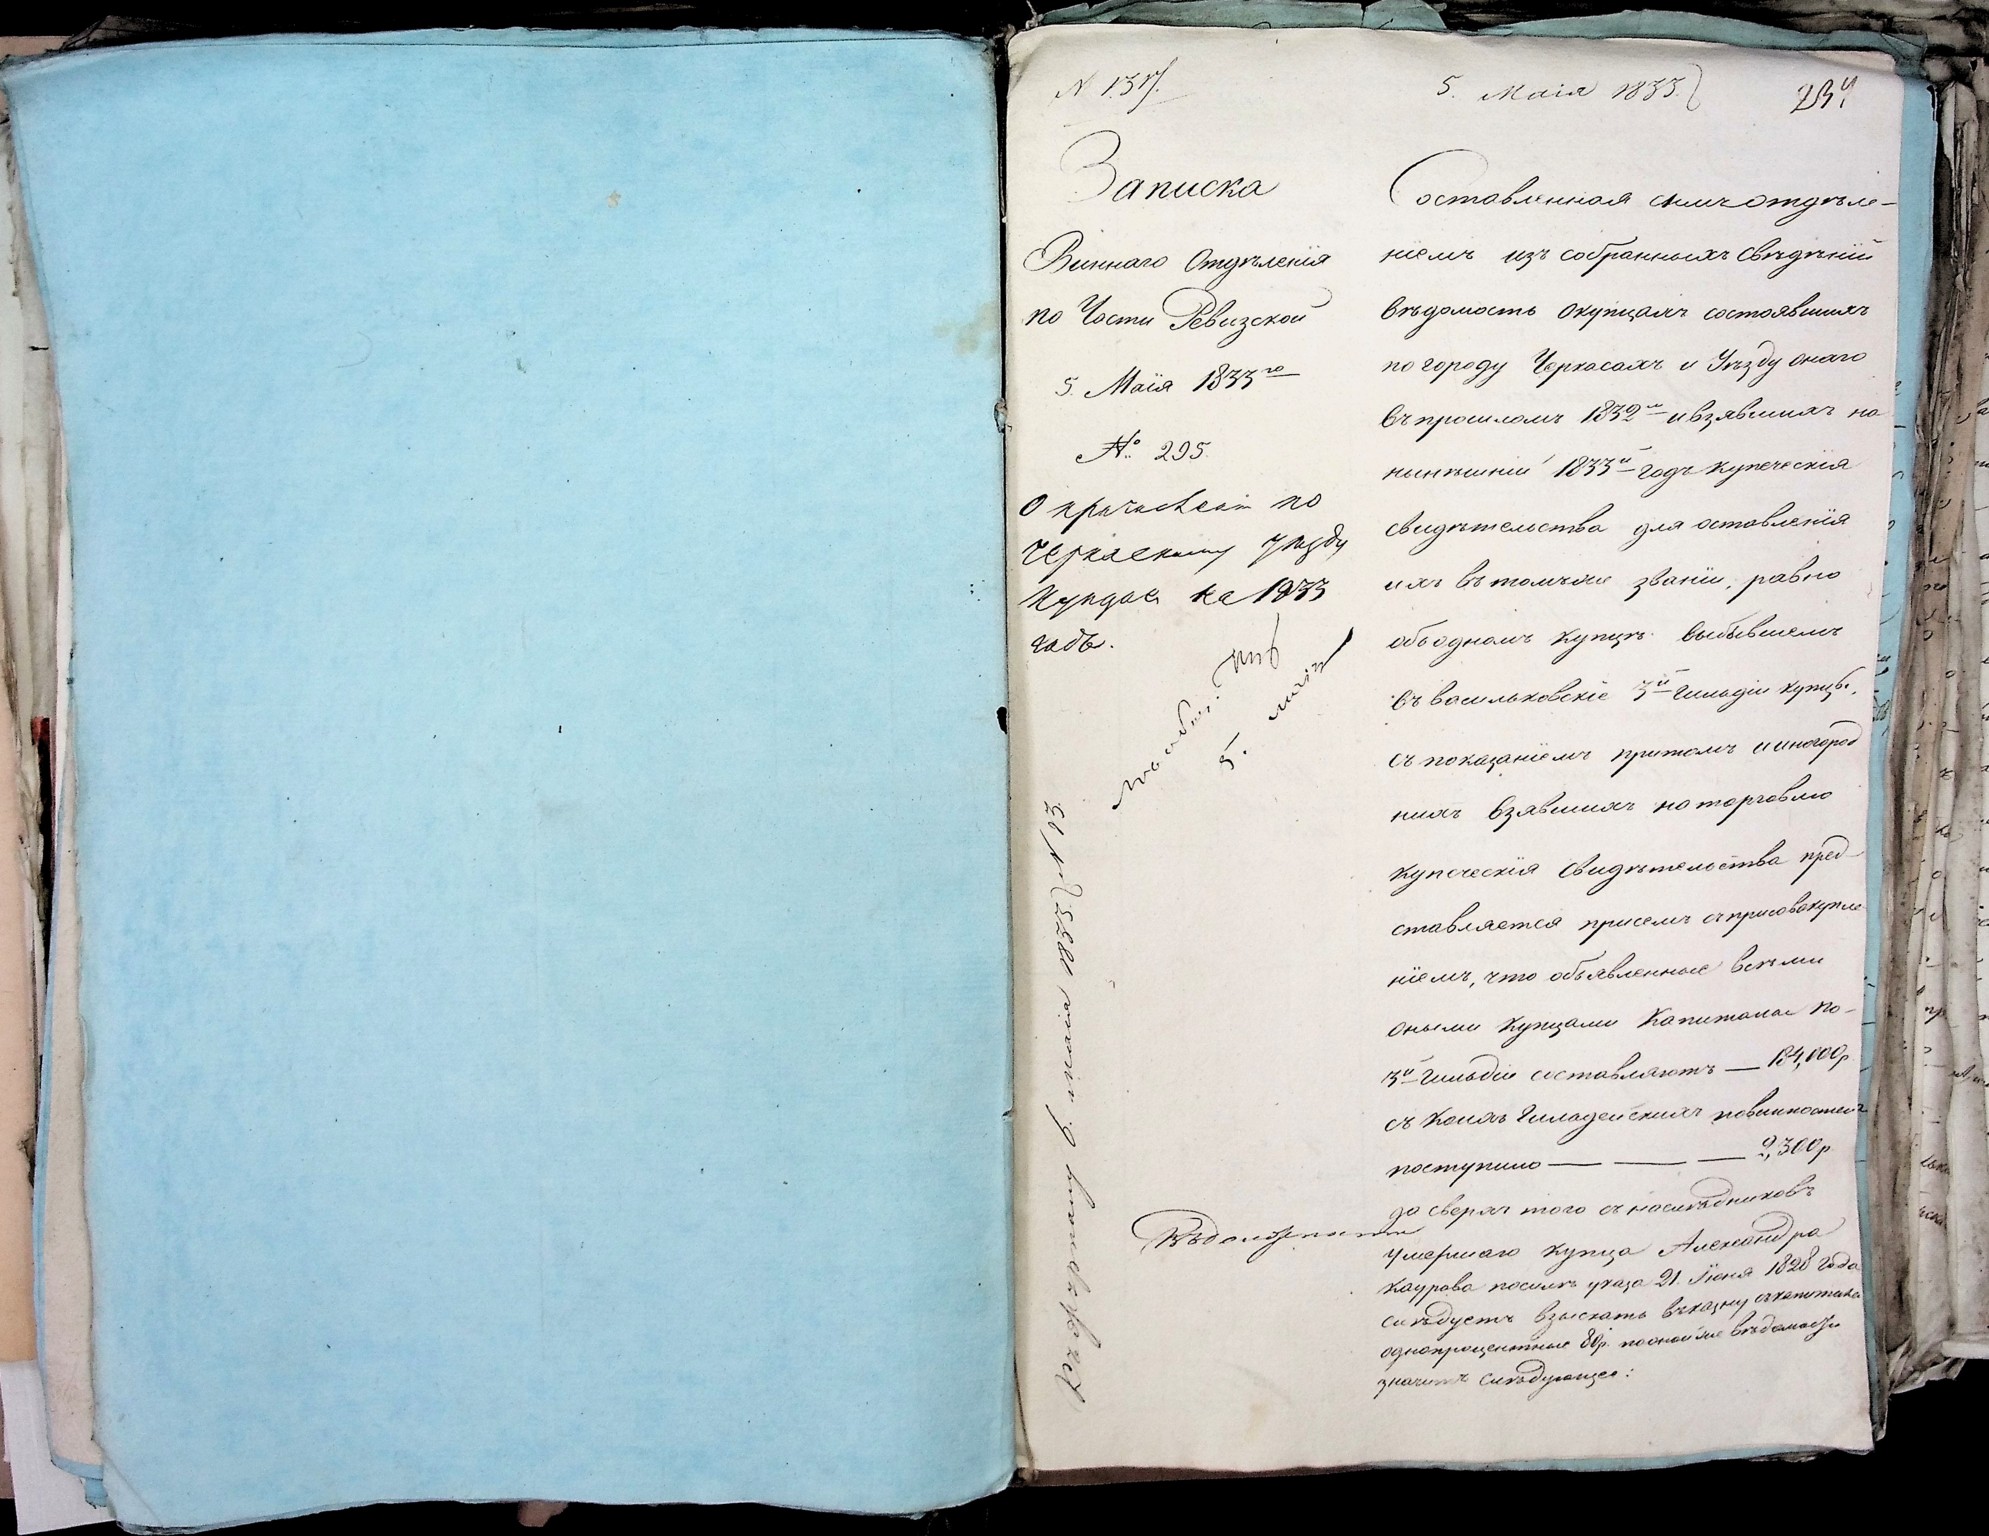 N 131/.
5. Маія 1833.
234
Записка
Виннаго Отдѣленія
по Части Ревизской
5. Маія 1833го
№ 295.
О причислен по
Черкаскому уѣзду
купцах на 1833
годъ.
5. маія
Къ формену 6. маія 1833. N 13
Составленная симъ отдѣле-
ніемъ изъ собранныхъ Свѣдѣній
вѣдомость окупцахъ состоявшихъ
по городу Черкасахъ и Уѣзду онаго
въ прошломъ 1832м и взявшихъ на
нынѣшній 1833й годъ купеческія
свидѣтельства для оставленія
ихъ въ томъже званіи, равно
обо одномъ купцѣ выбывшемъ
въ васильковскіе 3й гильдіи купцы,
съ показаніемъ притомъ и иногород
нихъ взявшихъ на торговлю
купеческія свидѣтельства пред-
ставляется присемъ съ присовокупле
ніемъ, что объявленные всѣми
оными купцами капиталы по-
3й гильдіи составляютъ — 184,000р.
съ коихъ гильдейскихъ повинностей
поступило — — — 2,300р
да сверхъ того съ наслѣдниковъ
умершаго купца Александра
Каурова посилѣ указа 21. Іюня 1828 года
слѣдуетъ взыскать въ казну съ капитала
однопроцентные 80р. по оной же вѣдомости
значитъ слѣдующее: